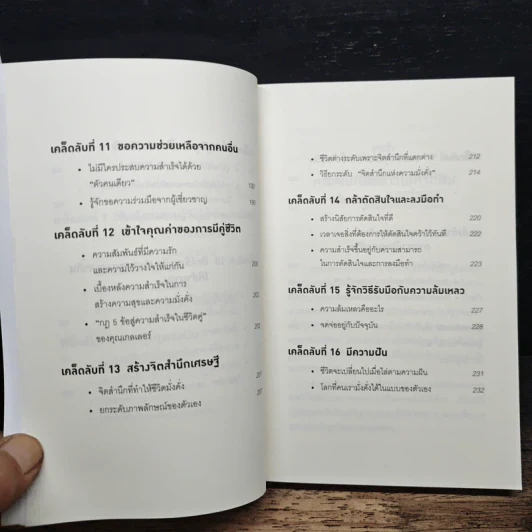 เคล็ดลับที่ 11 ขอความช่วยเหลือจากคนอื่น
• ไม่มีใครประสบความสำเร็จได้ด้วย
"ตัวคนเดียว"
• รู้จักขอความร่วมมือจากผู้เชี่ยวชาญ
เคล็ดลับที่ 12 เข้าใจคุณค่าของการมีคู่ชีวิต
• ความสัมพันธ์ที่มีความรัก
และความไว้วางใจให้แก่กัน
• เบื้องหลังความสำเร็จในการ
สร้างความสุขและความมั่งคั่ง
• "กฎ 5 ข้อสู่ความสำเร็จในชีวิตคู่"
ของคุณเกลเลอร์
เคล็ดลับที่ 13 สร้างจิตสำนึกเศรษฐี
• จิตสำนึกที่ทำให้ชีวิตมั่งคั่ง
• ยกระดับภาพลักษณ์ของตัวเอง
• ชีวิตต่างระดับเพราะจิตสำนึกที่แตกต่าง 212
• วิธียกระดับ "จิตสำนึกแห่งความมั่งคั่ง" 214
เคล็ดลับที่ 14 กล้าตัดสินใจและลงมือทำ
• สร้างนิสัยการตัดสินใจที่ดี 220
• เวลาเจอสิ่งที่ต้องการให้ตัดสินใจคว้าไว้ทันที 222
• ความสำเร็จขึ้นอยู่กับความสามารถ
ในการตัดสินใจและการลงมือทำ 223
เคล็ดลับที่ 15 รู้จักวิธีรับมือกับความล้มเหลว
• ความล้มเหลวคืออะไร 227
• จดจ่ออยู่กับปัจจุบัน 228
เคล็ดลับที่ 16 มีความฝัน
• ชีวิตจะเปลี่ยนไปเมื่อไล่ตามความฝัน 231
• โลกที่คนเรามั่งคั่งได้ในแบบของตัวเอง 232